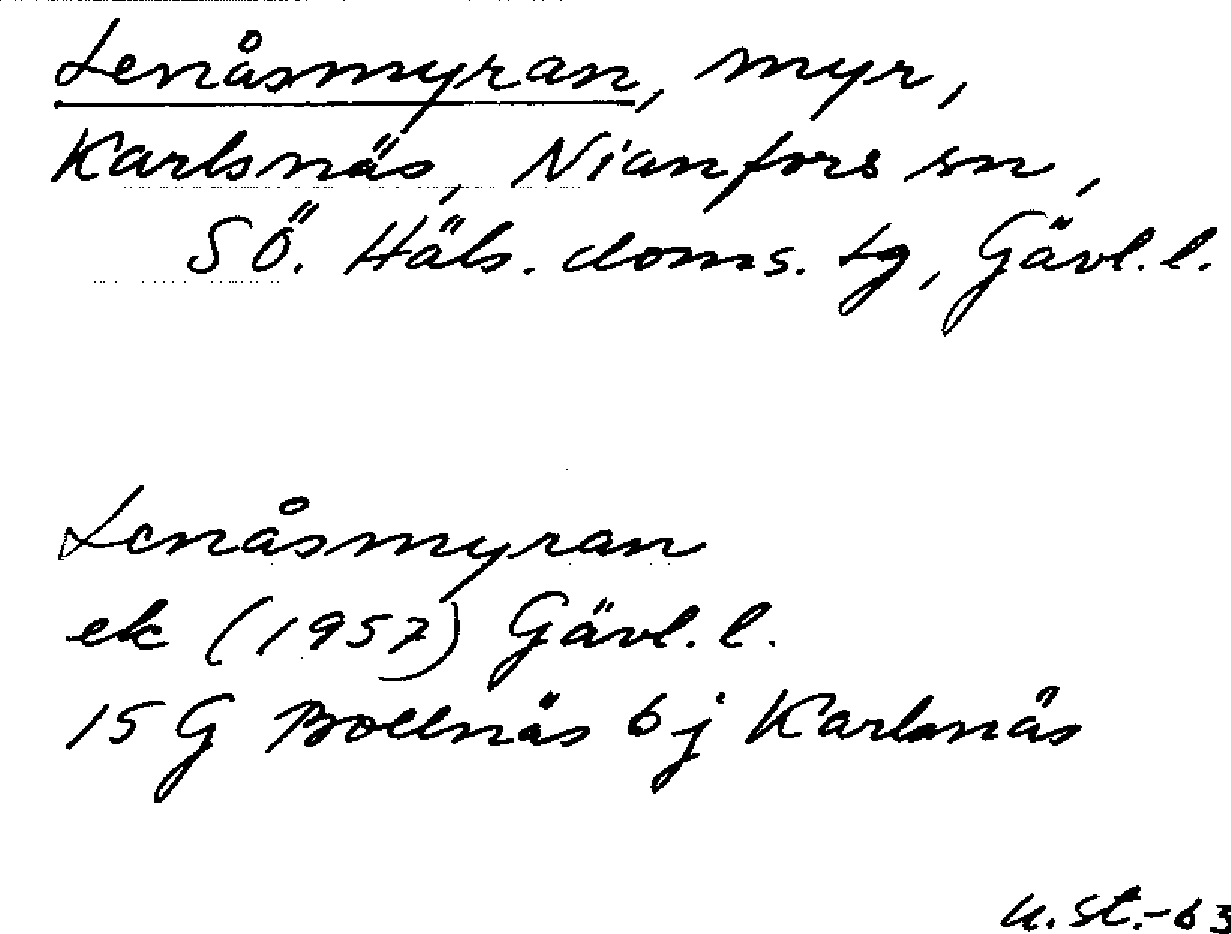 Lenåsmyran, myr,
Karlsnäs, Nianfors sn,
SÖ. Häls. doms. tg, Gävl. l.
Lenåsmyran
ek (1957) Gävl. l.
15 G Bollnäs 6j Karlsnäs
U. St.-63